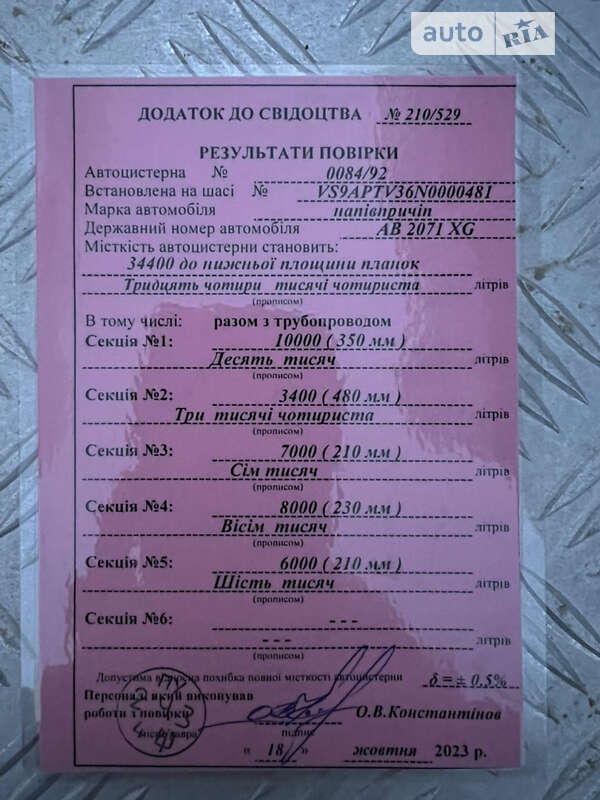 auto RIA
ДОДАТОК ДО СВІДОЦТВА № 210/529
РЕЗУЛЬТАТИ ПОВІРКИ
Автоцистерна № 0084/92
Встановлена на шасі № VS9APTV36N0000481
Марка автомобіля напівпричіп
Державний номер автомобіля АВ 2071 XG
Місткість автоцистерни становить:
34400 до нижньої площини планок
Тридцять чотири тисячі чотириста літрів
(прописом)
В тому числі: разом з трубопроводом
Секція №1: 10000 ( 350 мм )
Десять тисяч літрів
(прописом)
Секція №2: 3400 ( 480 мм )
Три тисячі чотириста літрів
(прописом)
Секція №3: 7000 ( 210 мм )
Сім тисяч літрів
(прописом)
Секція №4: 8000 ( 230 мм )
Вісім тисяч літрів
(прописом)
Секція №5: 6000 ( 210 мм )
Шість тисяч літрів
(прописом)
Секція №6: - - -
- - - літрів
Допустима відносна похибка повної місткості автоцистерни δ = ± 0,5%
Персонал який виконував
роботи з повірки О.В.Константінов
підпис
« 18 » жовтня 2023 р.